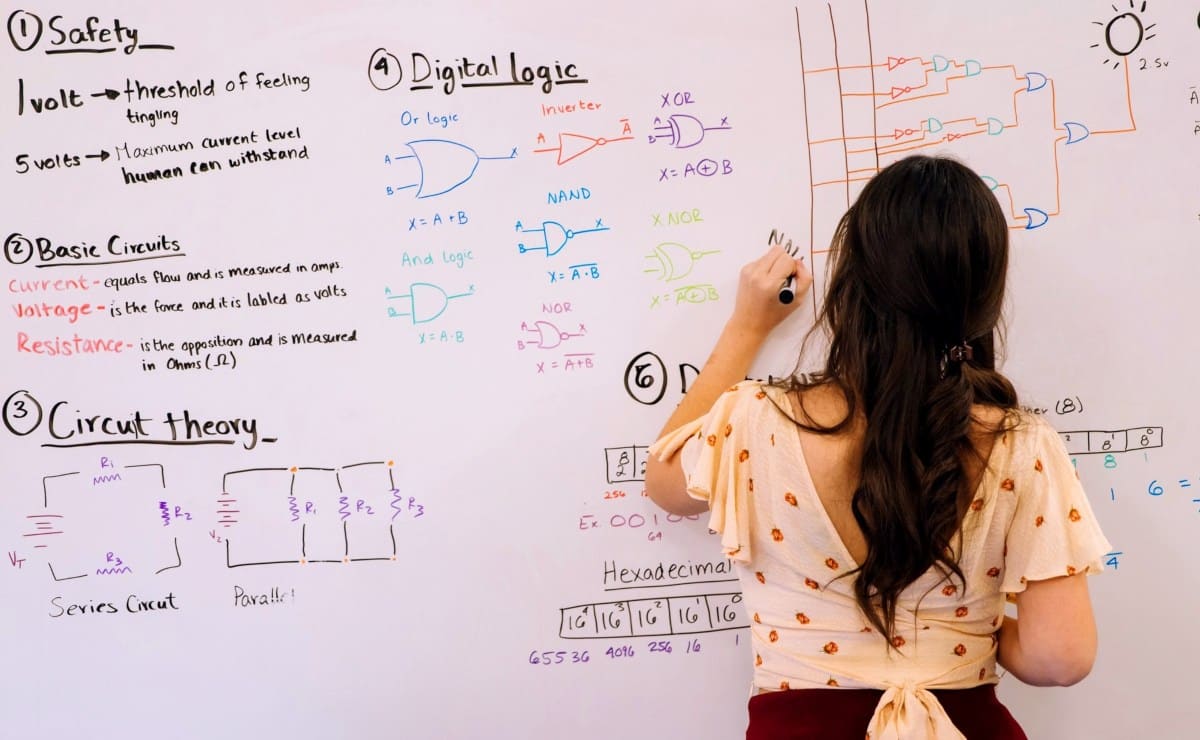 ① Safety
1 volt → threshold of feeling
tingling
5 volts → Maximum current level
human can withstand
② Basic Circuits
Current - equals flow and is measured in amps.
Voltage - is the force and it is labled as volts
Resistance - is the opposition and is measured
in Ohms (Ω)
③ Circuit theory
R1
R2
R3
VT
Series Circut
V2
R1
R2
R3
Parallel
④ Digital logic
Or logic
A
B
X
X = A + B
And Logic
A
B
X
X = A·B
Inverter
A
A̅
NAND
A
B
X
X = A̅·̅B̅
NOR
A
B
X
X = A̅+̅B̅
XOR
A
B
X
X = A⊕B
X NOR
X = A̅⊕̅B̅
2.5v
A̅
⑥
(8)
256
8¹ 8⁰
8 1
1 6 =
4
Ex. 001
64
Hexadecimal
16⁴ 16³ 16² 16¹ 16⁰
65536 4096 256 16 1